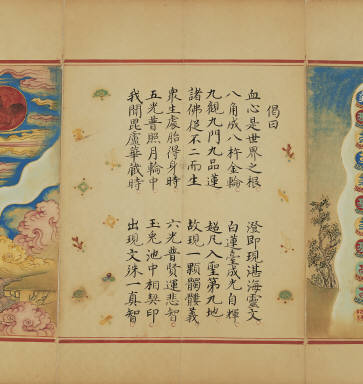 偈曰
血心是世界之根　澄即現湛海靈文
八角成八杵金輪　白蓮臺成光自輝
九觀九門九品蓮　超凡入聖第九地
諸佛從不二而生　故現一顆髑髏義
衆生處胎得身時　六光普賢運悲智
五光普照月輪中　玉光池中相契印
我聞毘盧華藏時　出現文殊一真智